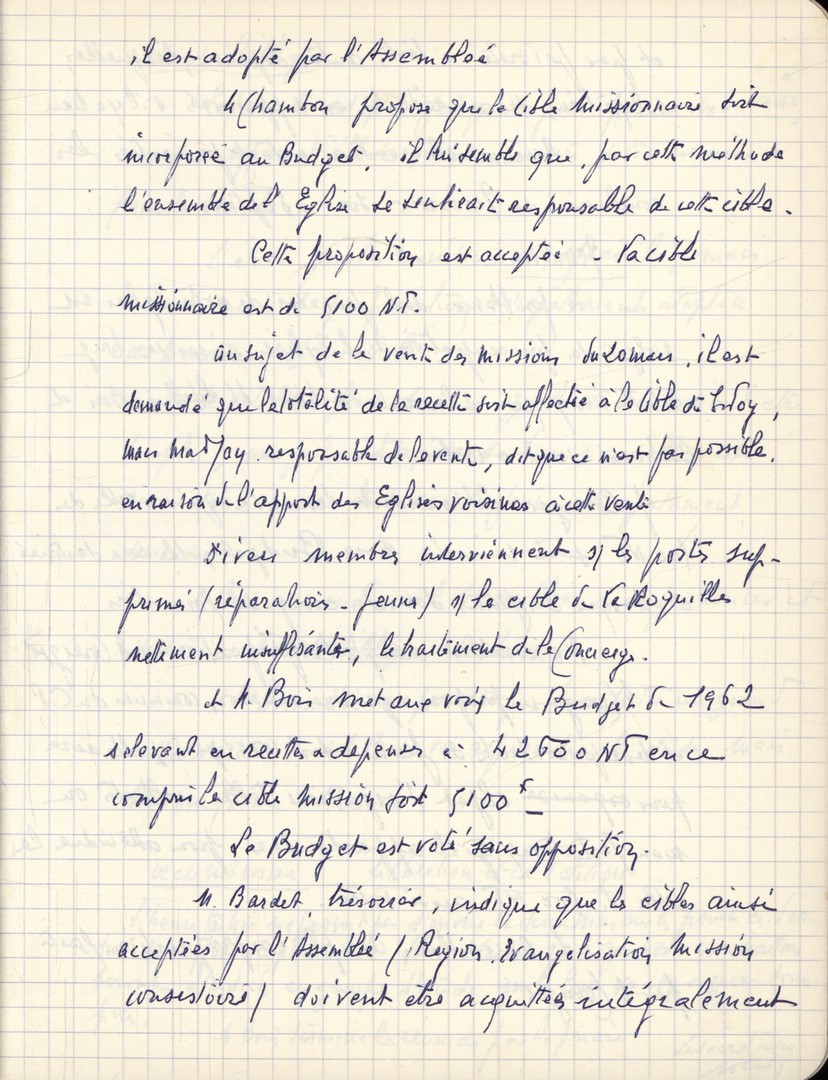 il est adopté par l'Assemblée
M Chambon propose que la Cible Missionnaire soit
incorporée au Budget, il lui semble que, par cette méthode
l'ensemble de l'Eglise se sentirait responsable de cette cible.
Cette proposition est acceptée - La cible
missionnaire est de 5100 NF.
au sujet de la vente des missions du 20 mars, il est
demandé que la totalité de la recette soit affectée à la Cible de
mais responsable de la vente, dit que ce n'est pas possible.
en raison de l'apport des Eglises voisines à cette vente
Divers membres interviennent s/ les postes sup-
primés (réparations - Jeunes) s/ la cible de La Roquille
nettement insuffisante, le traitement de la Concierge.
et M. Bois met aux voix le Budget de 1962
s'élevant en recettes et dépenses à 42600 NF en ce
compris la cible mission soit 5100 F -
Le Budget est voté sans opposition.
M. Bardet, trésorier, indique que les cibles ainsi
acceptées par l'Assemblée (Région. Evangélisation Mission
consistoire) doivent être acquittées intégralement